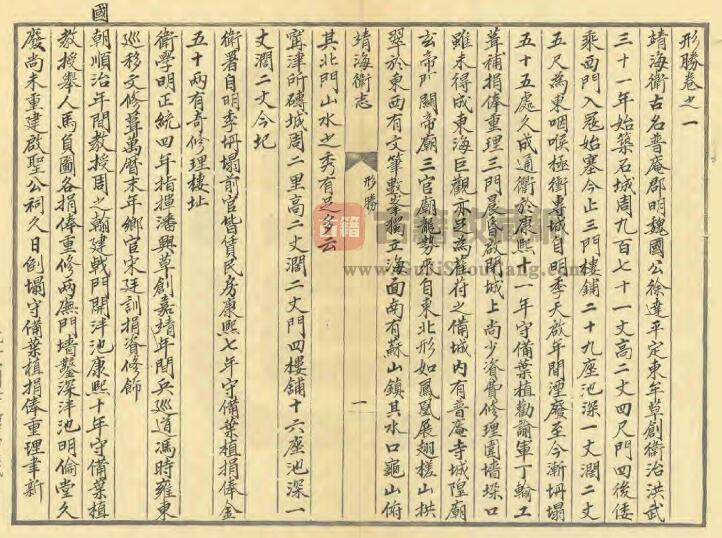 形勝卷之一
靖海衛古名普庵郡明魏國公徐達平定東牟草創衛治洪武
三十一年始築石城周九百七十一丈高二丈四尺門四後倭
乘西門入冦始塞今止三門樓鋪二十九座池深一丈濶二丈
五尺為東咽喉極衝專城自明季天啟年間湮廢至今漸坍塌
五十五處久成通衢於康熙十一年守備葉植勸諭軍丁輸工
葺補捐俸重理三門晨昏啟閉城上尚少資費修理圍墻垛口
雖未得成東海巨觀亦足為萑苻之備城內有普庵寺城隍廟
玄帝廟關帝廟三官廟龍勢來自東北形如鳳凰展翅槎山拱
翠於東西有文筆數峯獨立海面南有蘇山鎮其水口龜山俯
靖海衛志 形勝 一
其北門山水之秀有足多云
甯津所磚城周二里高二丈濶二丈門四樓鋪十六座池深一
丈濶二丈今圮
衛署自明季坍塌前官皆賃民房康熙七年守備葉植捐俸金
五十兩有奇修理樓址
衛學明正統四年指揮潘興草創嘉靖年間兵巡道馮時雍東
巡移文修葺萬曆末年鄉官宋廷訓捐資修飾
國朝順治年間教授周之翰建戟門開泮池康熙十年守備葉植
教授舉人馬負圖各捐俸重修兩廡門墻鑿深泮池明倫堂久
廢尚未重建啟聖公祠久日倒塌守備葉植捐俸重理聿新
古籍
www.GuJiShouCang.com